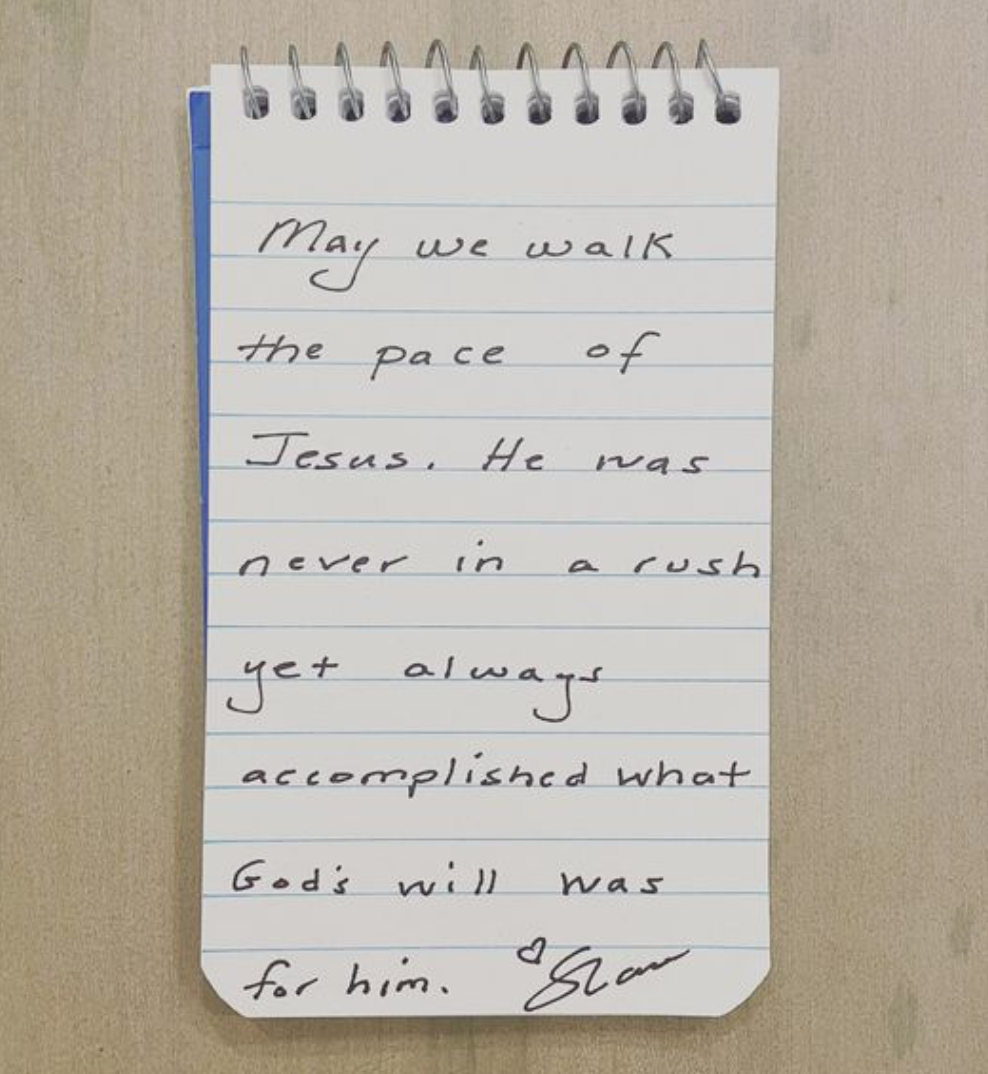 May we walk
the pace of
Jesus. He was
never in a rush
yet always
accomplished what
God's will was
for him. ♡